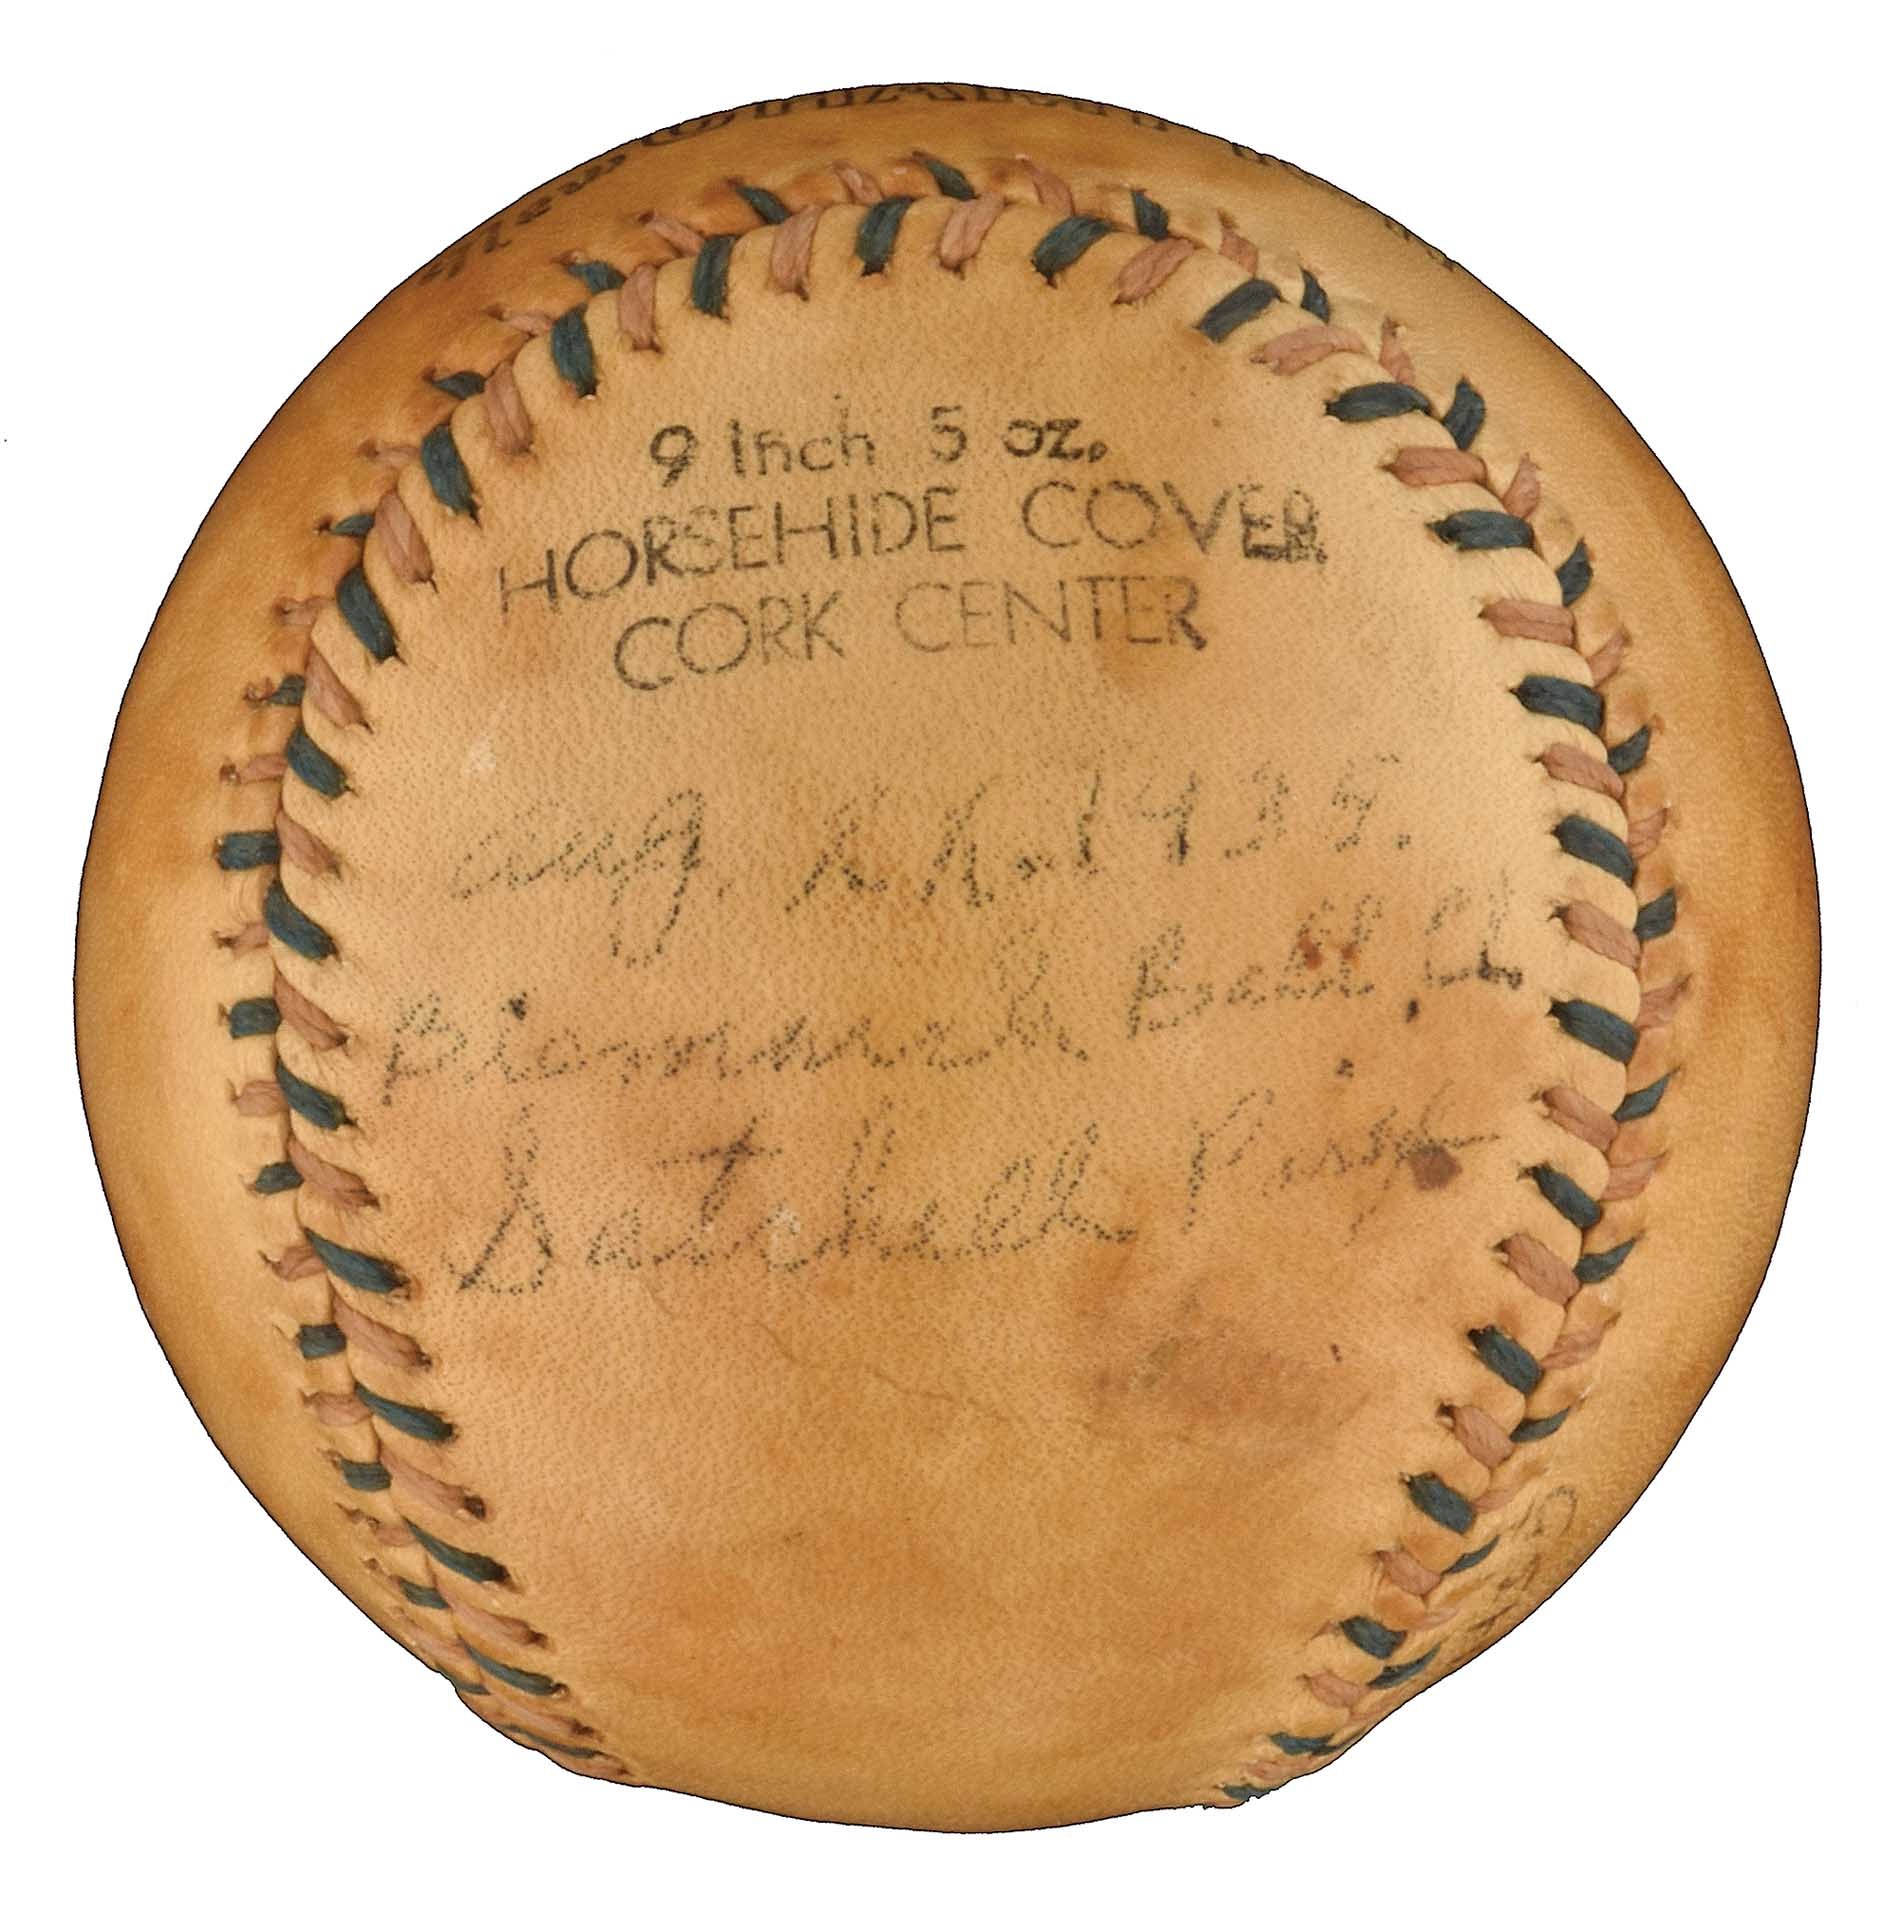 9 Inch 5 oz.
HORSEHIDE COVER
CORK CENTER
Aug. 22. 1935.
Bismarck Ball Cl.
Satchell Paige